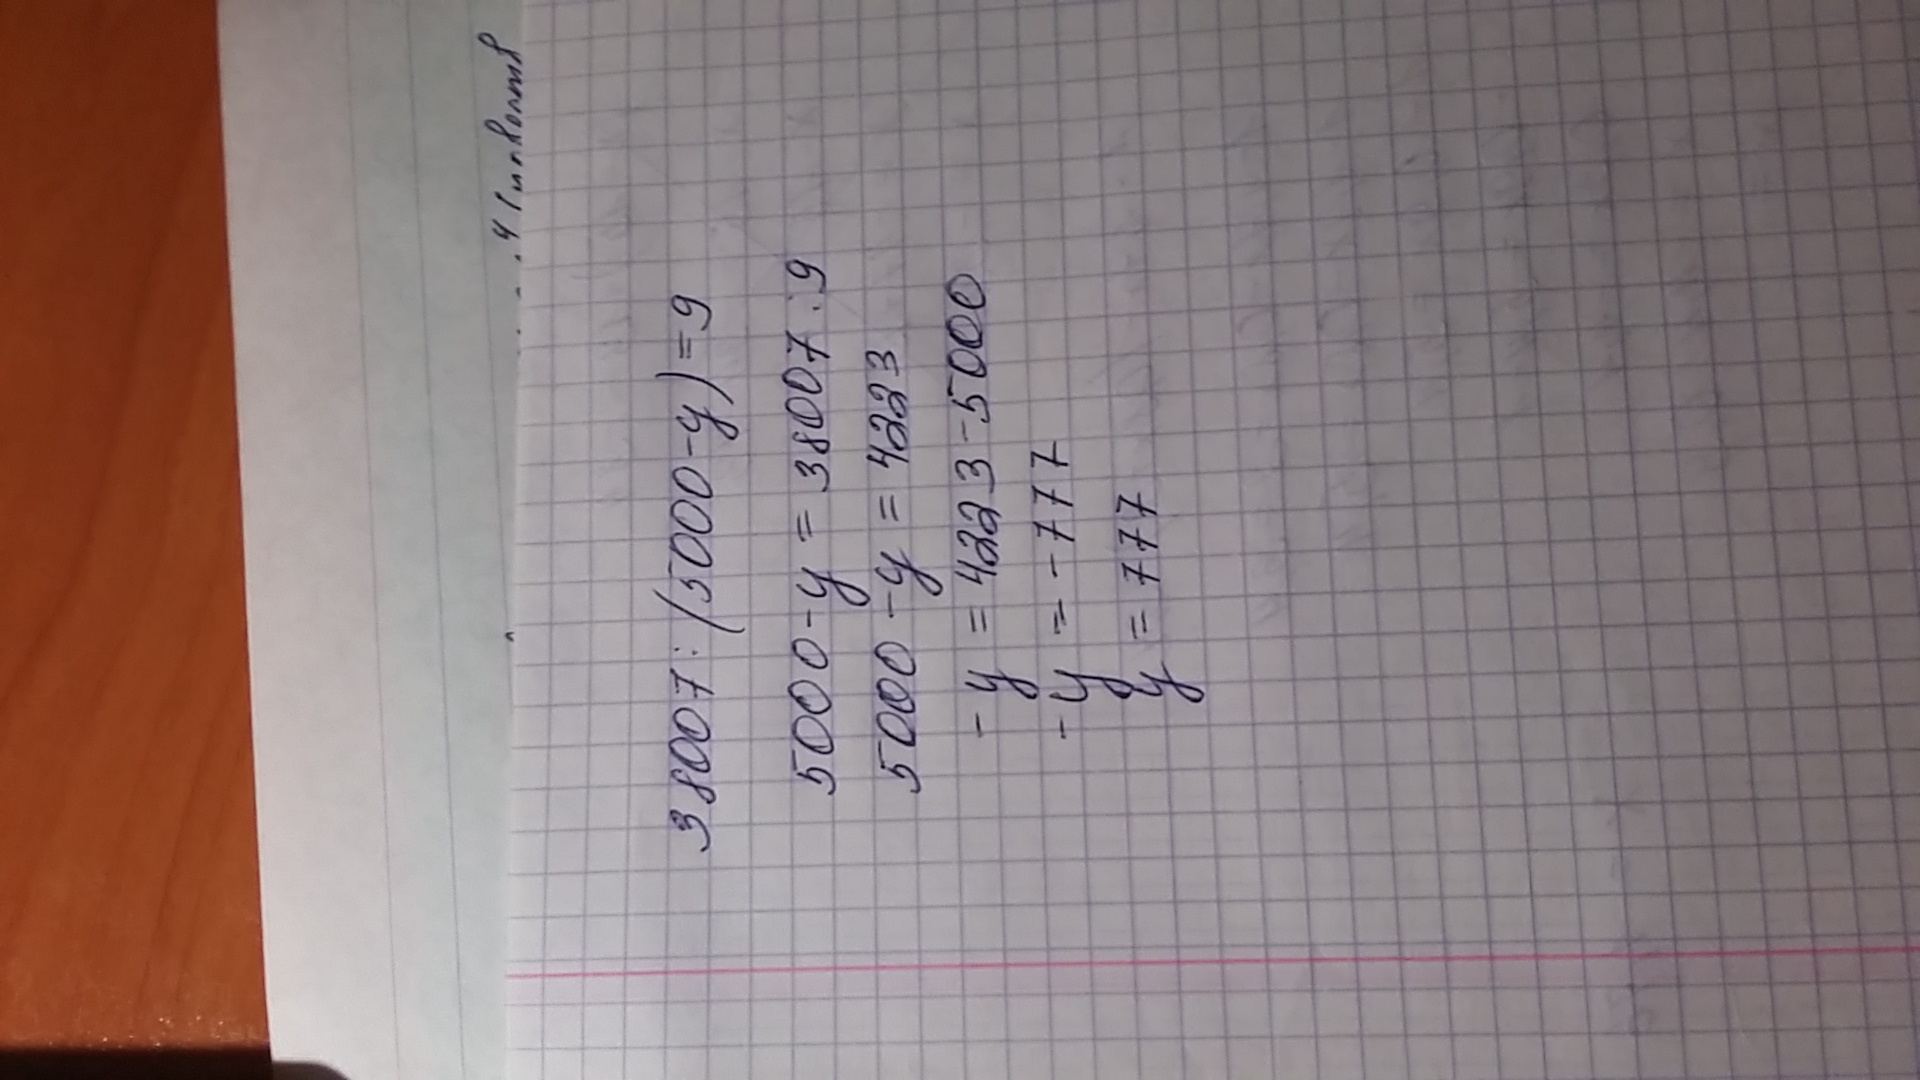 38007:(5000-y)=9
5000-y=38007:9
5000-y=4223
-y=4223-5000
-y=-777
y=777